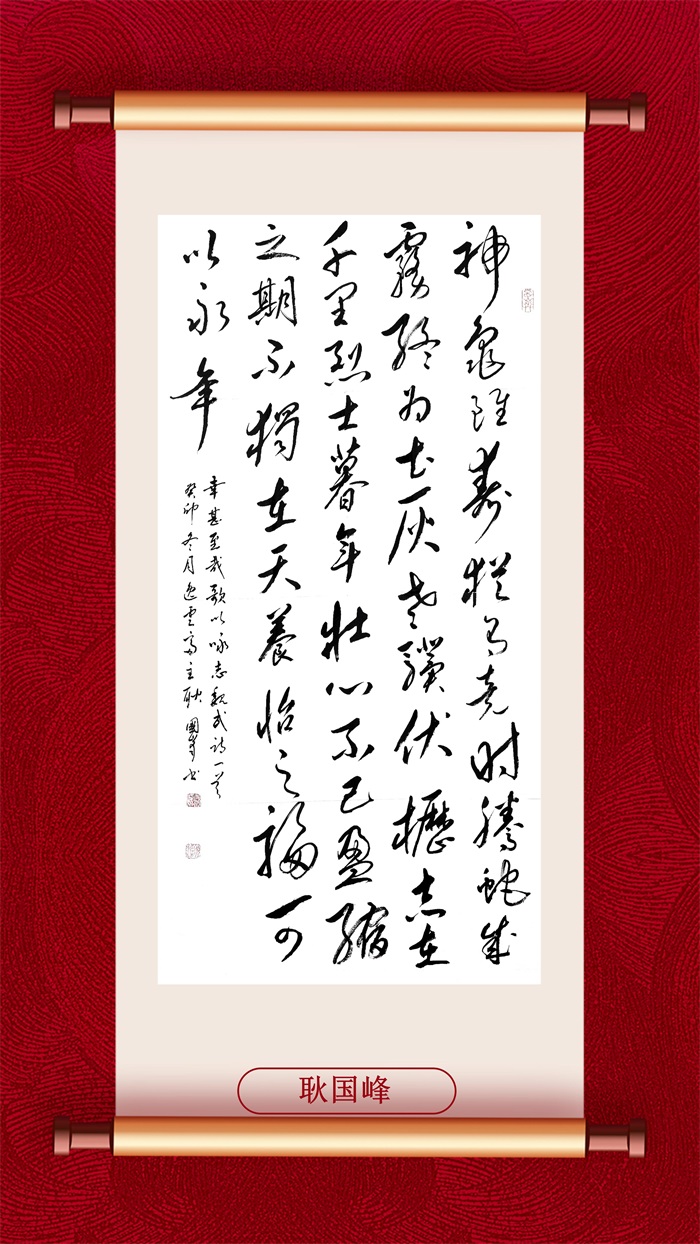 神龜雖壽猶有竟时騰蛇乘
霧終为土灰老驥伏櫪志在
千里烈士暮年壯心不已盈縮
之期不獨在天養怡之福可
以永年
幸甚至哉歌以咏志魏武诗一首
癸卯冬月逸雲斋主耿國峯书
耿国峰